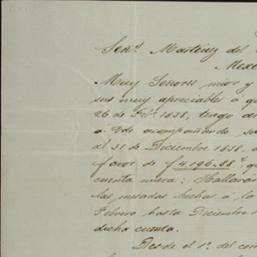 Senr. Martinez del
Mexi
Muy Señores mios y
sus muy apreciables
26 de 1838, tengo
acompañando
al 31 de Diciembre 1838.
favor de
cuenta nueva: Hallarán
las mesadas hechas á
Febrero hasta Diciembre
dicha cuenta.
Desde el 1º. del